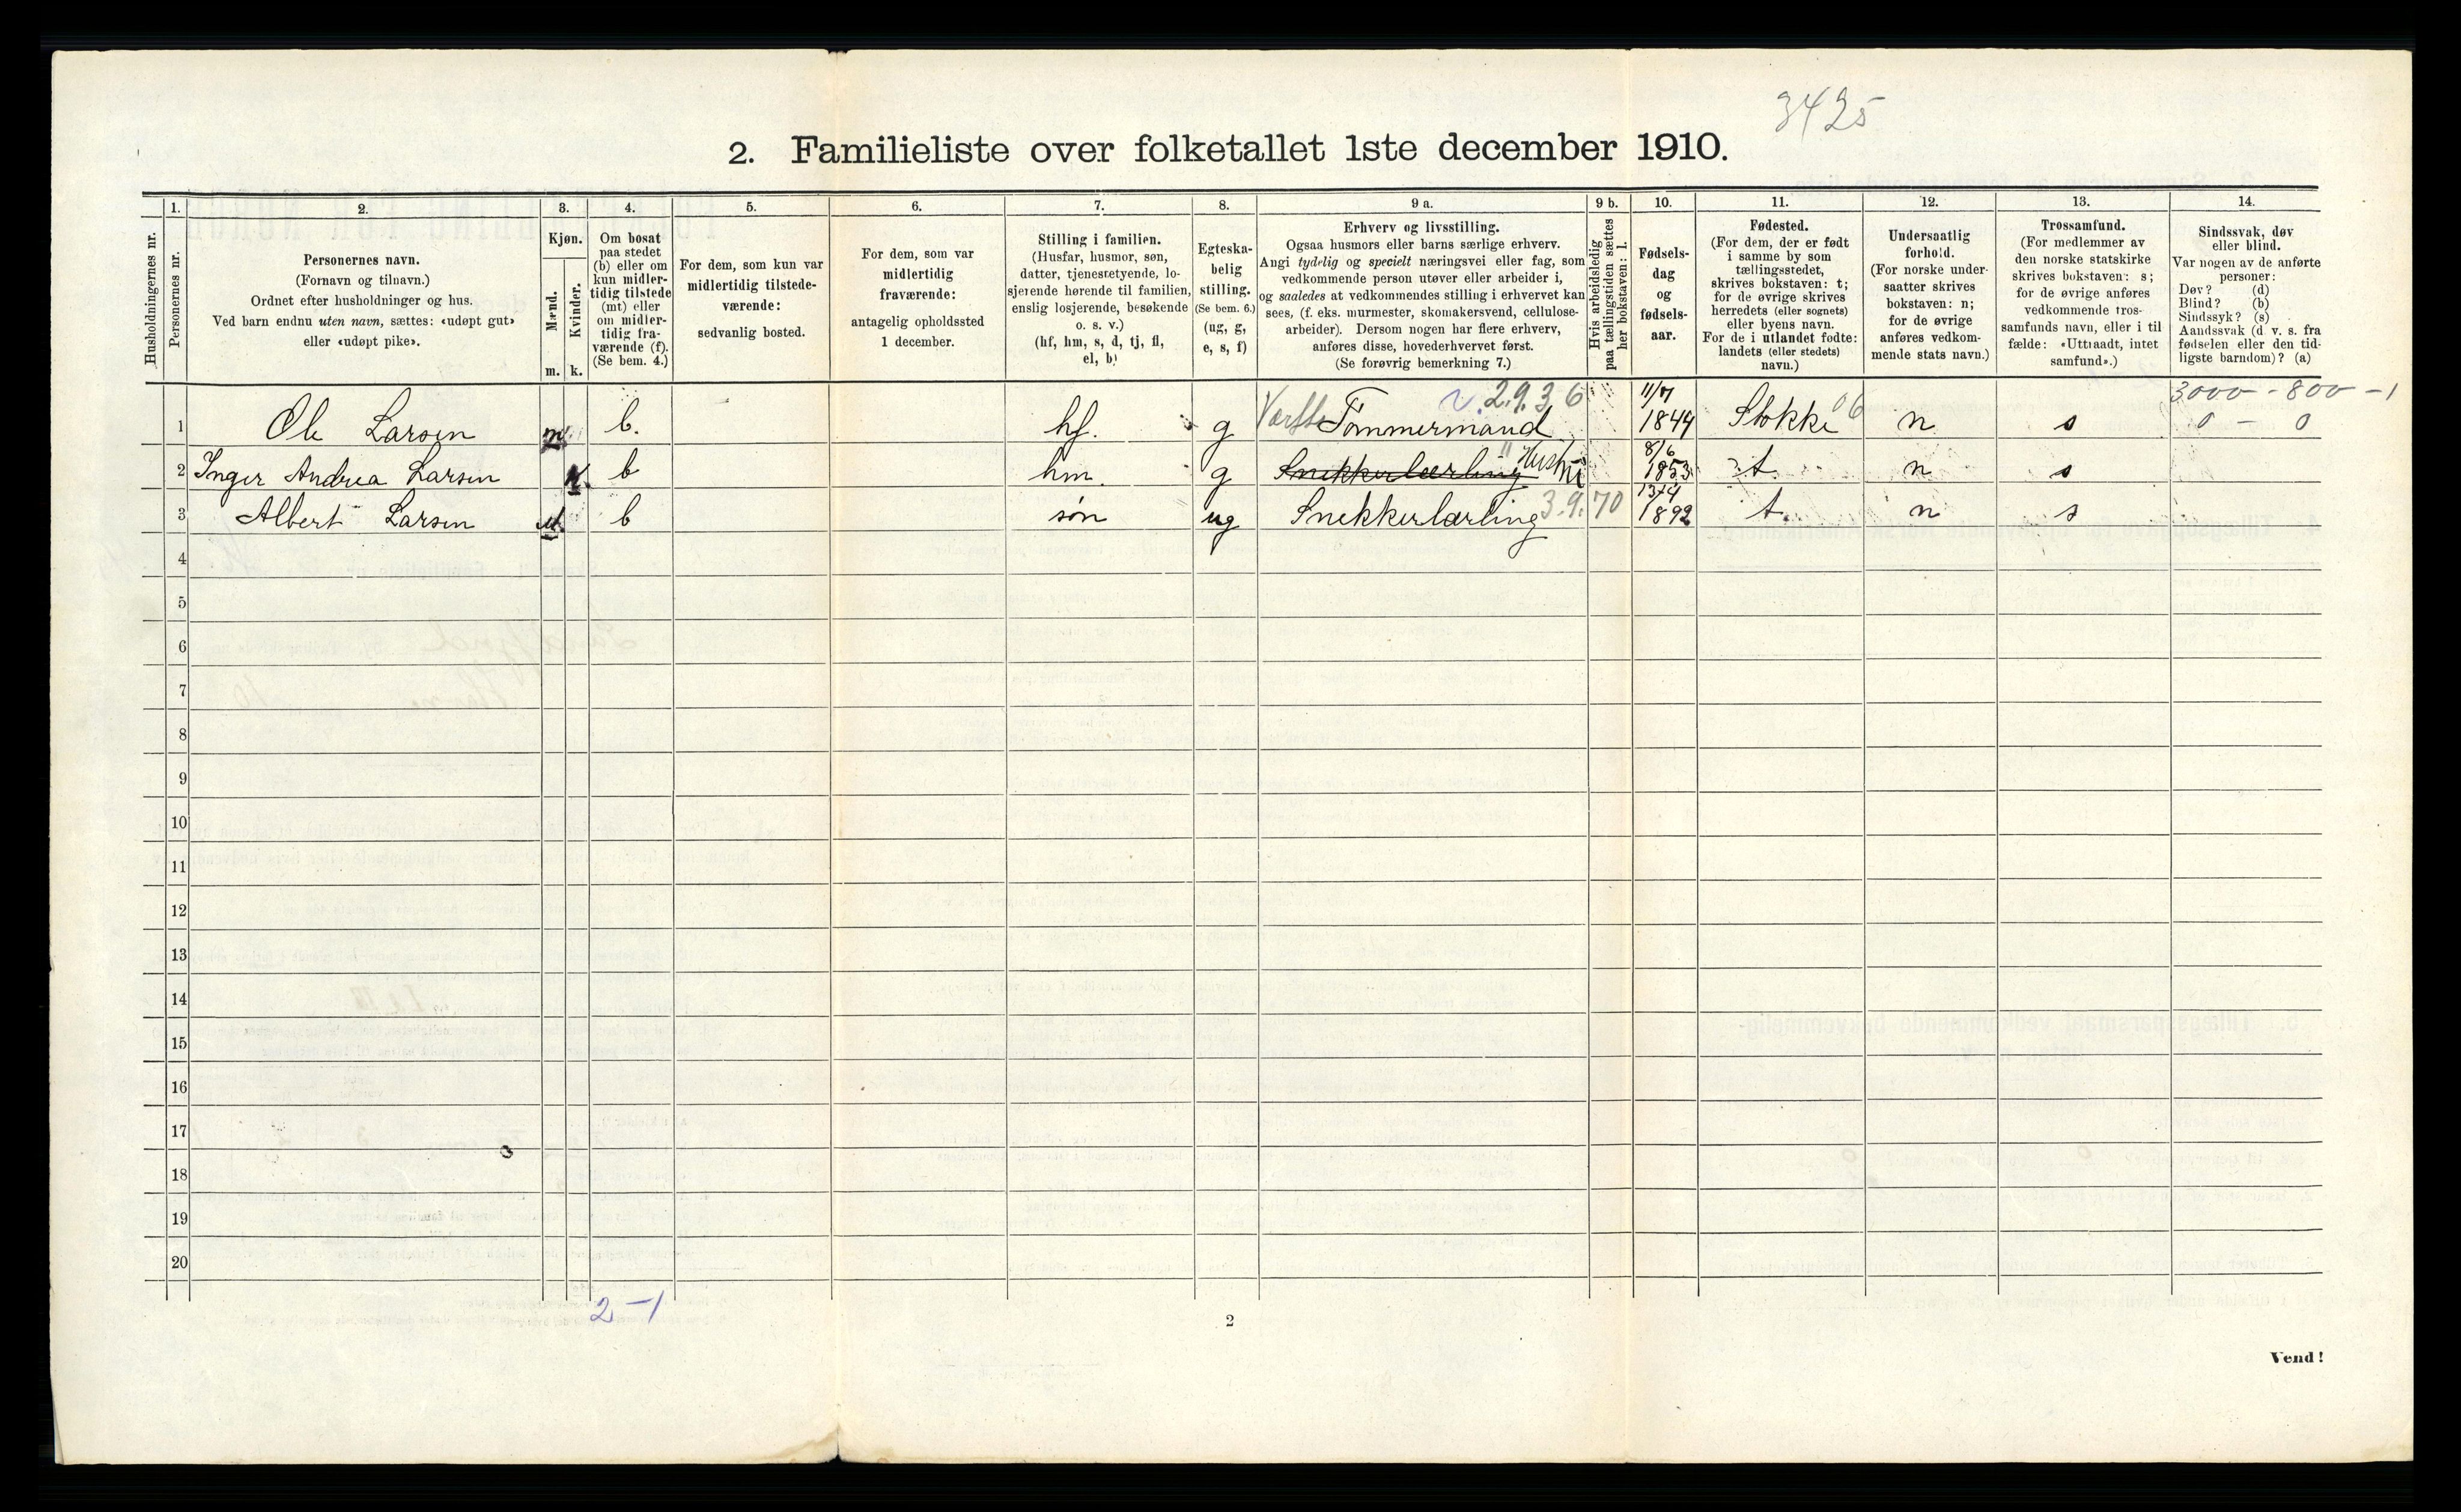 3425
2. Familieliste over folketallet 1ste december 1910.
Husholdningernes nr.
1.
Personernes nr.
2.
Personernes navn.
(Fornavn og tilnavn.)
Ordnet efter husholdninger og hus.
Ved barn endnu uten navn, sættes: «udøpt gut»
eller «udøpt pike».
3.
Kjøn.
Mænd.
Kvinder.
m. k.
4.
Om bosat
paa stedet
(b) eller om
kun midler-
tidig tilstede
(mt) eller
om midler-
tidig fra-
værende (f).
(Se bem. 4.)
5.
For dem, som kun var
midlertidig tilstede-
værende:
sedvanlig bosted.
6.
For dem, som var
midlertidig
fraværende:
antagelig opholdssted
1 december.
7.
Stilling i familien.
(Husfar, husmor, søn,
datter, tjenestetyende, lo-
sjerende hørende til familien,
enslig losjerende, besøkende
o. s. v.)
(hf, hm, s, d, tj, fl,
el, b)
8.
Egteska-
belig
stilling.
(Se bem. 6.)
(ug, g,
e, s, f)
9 a.
Erhverv og livsstilling.
Ogsaa husmors eller barns særlige erhverv.
Angi tydelig og specielt næringsvei eller fag, som
vedkommende person utøver eller arbeider i,
og saaledes at vedkommendes stilling i erhvervet kan
sees, (f. eks. murmester, skomakersvend, cellulose-
arbeider). Dersom nogen har flere erhverv,
anføres disse, hovederhvervet først.
(Se forøvrig bemerkning 7.)
9 b.
Hvis arbeidsledig
paa tællingstiden sættes
her bokstaven: l.
10.
Fødsels-
dag
og
fødsels-
aar.
11.
Fødested.
(For dem, der er født
i samme by som
tællingsstedet,
skrives bokstaven: t;
for de øvrige skrives
herredets (eller sognets)
eller byens navn.
For de i utlandet fødte:
landets (eller stedets)
navn.)
12.
Undersaatlig
forhold.
(For norske under-
saatter skrives
bokstaven: n;
for de øvrige
anføres vedkom-
mende stats navn.)
13.
Trossamfund.
(For medlemmer av
den norske statskirke
skrives bokstaven: s;
for de øvrige anføres
vedkommende tros-
samfunds navn, eller i til
fælde: «Uttraadt, intet
samfund».)
14.
Sindssvak, døv
eller blind.
Var nogen av de anførte
personer:
Døv? (d)
Blind? (b)
Sindssyk? (s)
Aandssvak (d. v. s. fra
fødselen eller den tid-
ligste barndom)? (a)
2.9.36 11/7 3000 - 800 - 1
1 Ole Larsen m b. hf. g Tømmermand 1844 Stokke 06 n s 0 - 0
8/6
2 Inger Andrea Larsen k. b hm. g Snekkerlærling 1853 t. n s
13/4
3 Albert Larsen m. b søn ug Snekkerlærling 3.9.70 1892 t. n s
4
5
6
7
8
9
10
11
12
13
14
15
16
17
18
19
20
2-1
2
Vend!